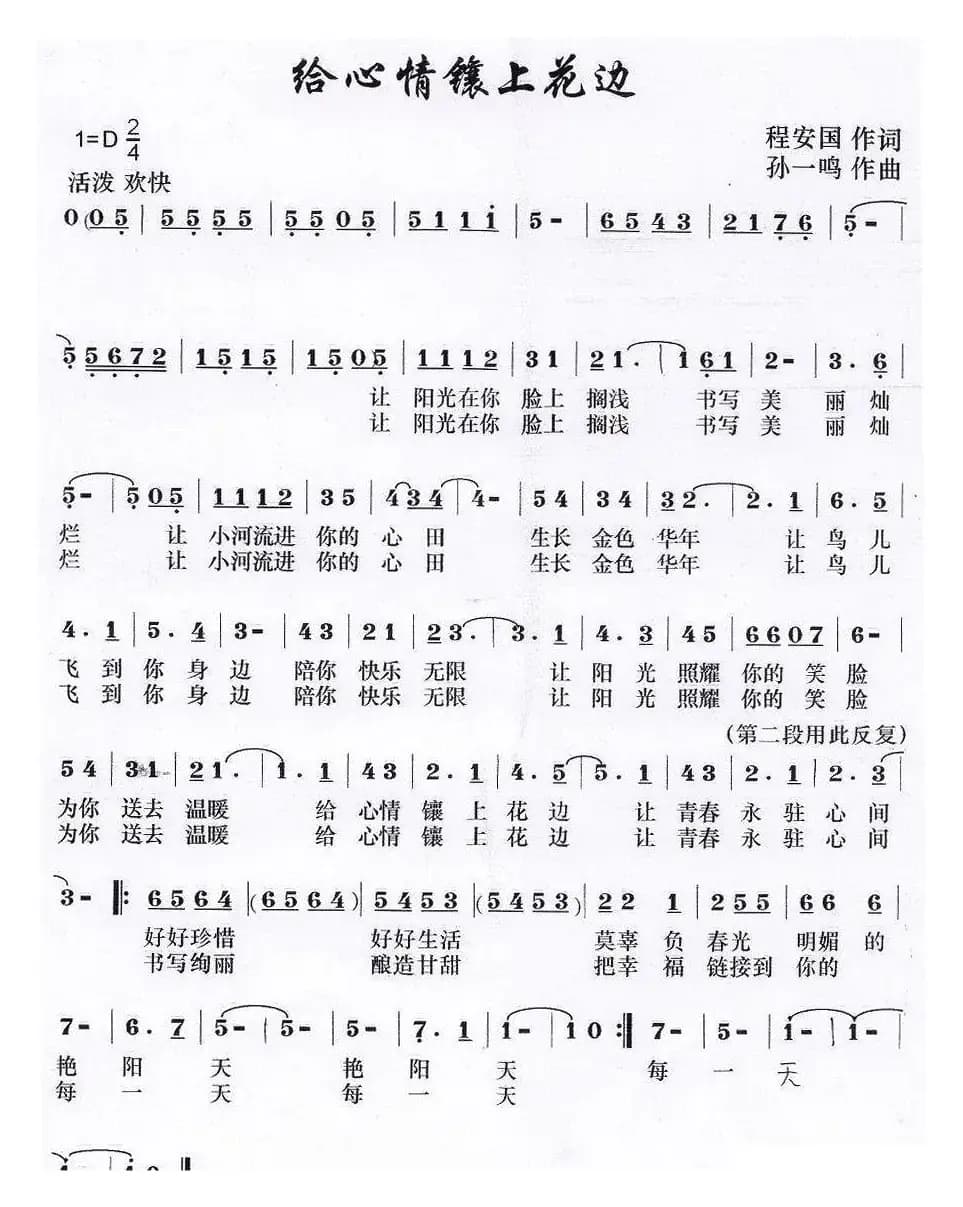 给心情镶上花边
1=D 2/4
程安国 作词
活泼 欢快
孙一鸣 作曲
0 (0 5 | 5 5 5 5 | 5 5 0 5 | 5 1 1 i | 5 - | 6 5 4 3 | 2 1 7 6 | 5 - |
5 5 6 7 2 | 1 5 1 5 | 1 5 0 5 | 1 1 1 2 | 3 1 | 2 1 . | 1 6 1 | 2 - | 3 . 6 |
让 阳光在你 脸上 搁浅 书写 美 丽 灿
让 阳光在你 脸上 搁浅 书写 美 丽 灿
5 - | 5 0 5 | 1 1 1 2 | 3 5 | 4 3 4 | 4 - | 5 4 | 3 4 | 3 2 . | 2 . 1 | 6 . 5 |
烂 让 小河流进 你的 心 田 生长 金色 华年 让 鸟 儿
烂 让 小河流进 你的 心 田 生长 金色 华年 让 鸟 儿
4 . 1 | 5 . 4 | 3 - | 4 3 | 2 1 | 2 3 . | 3 . 1 | 4 . 3 | 4 5 | 6 6 0 7 | 6 - |
飞 到 你 身 边 陪你 快乐 无限 让 阳 光 照耀 你的 笑 脸
飞 到 你 身 边 陪你 快乐 无限 让 阳 光 照耀 你的 笑 脸
(第二段用此反复)
5 4 | 3 1 | 2 1 . | 1 . 1 | 4 3 | 2 . 1 | 4 . 5 | 5 . 1 | 4 3 | 2 . 1 | 2 . 3 |
为你 送去 温暖 给 心情 镶 上 花 边 让 青春 永 驻 心 间
为你 送去 温暖 给 心情 镶 上 花 边 让 青春 永 驻 心 间
3 - ‖: 6 5 6 4 | (6 5 6 4) | 5 4 5 3 | (5 4 5 3) | 2 2 1 | 2 5 5 | 6 6 6 |
好好珍惜 好好生活 莫辜 负 春光 明媚 的
书写绚丽 酿造甘甜 把幸 福 链接到 你的
7 - | 6 . 7 | 5 - | 5 - | 5 - | 7 . 1 | 1 - | 1 0 :‖ 7 - | 5 - | 1 - | 1 - |
艳 阳 天 艳 阳 天 每 一 天
每 一 天 每 一 天